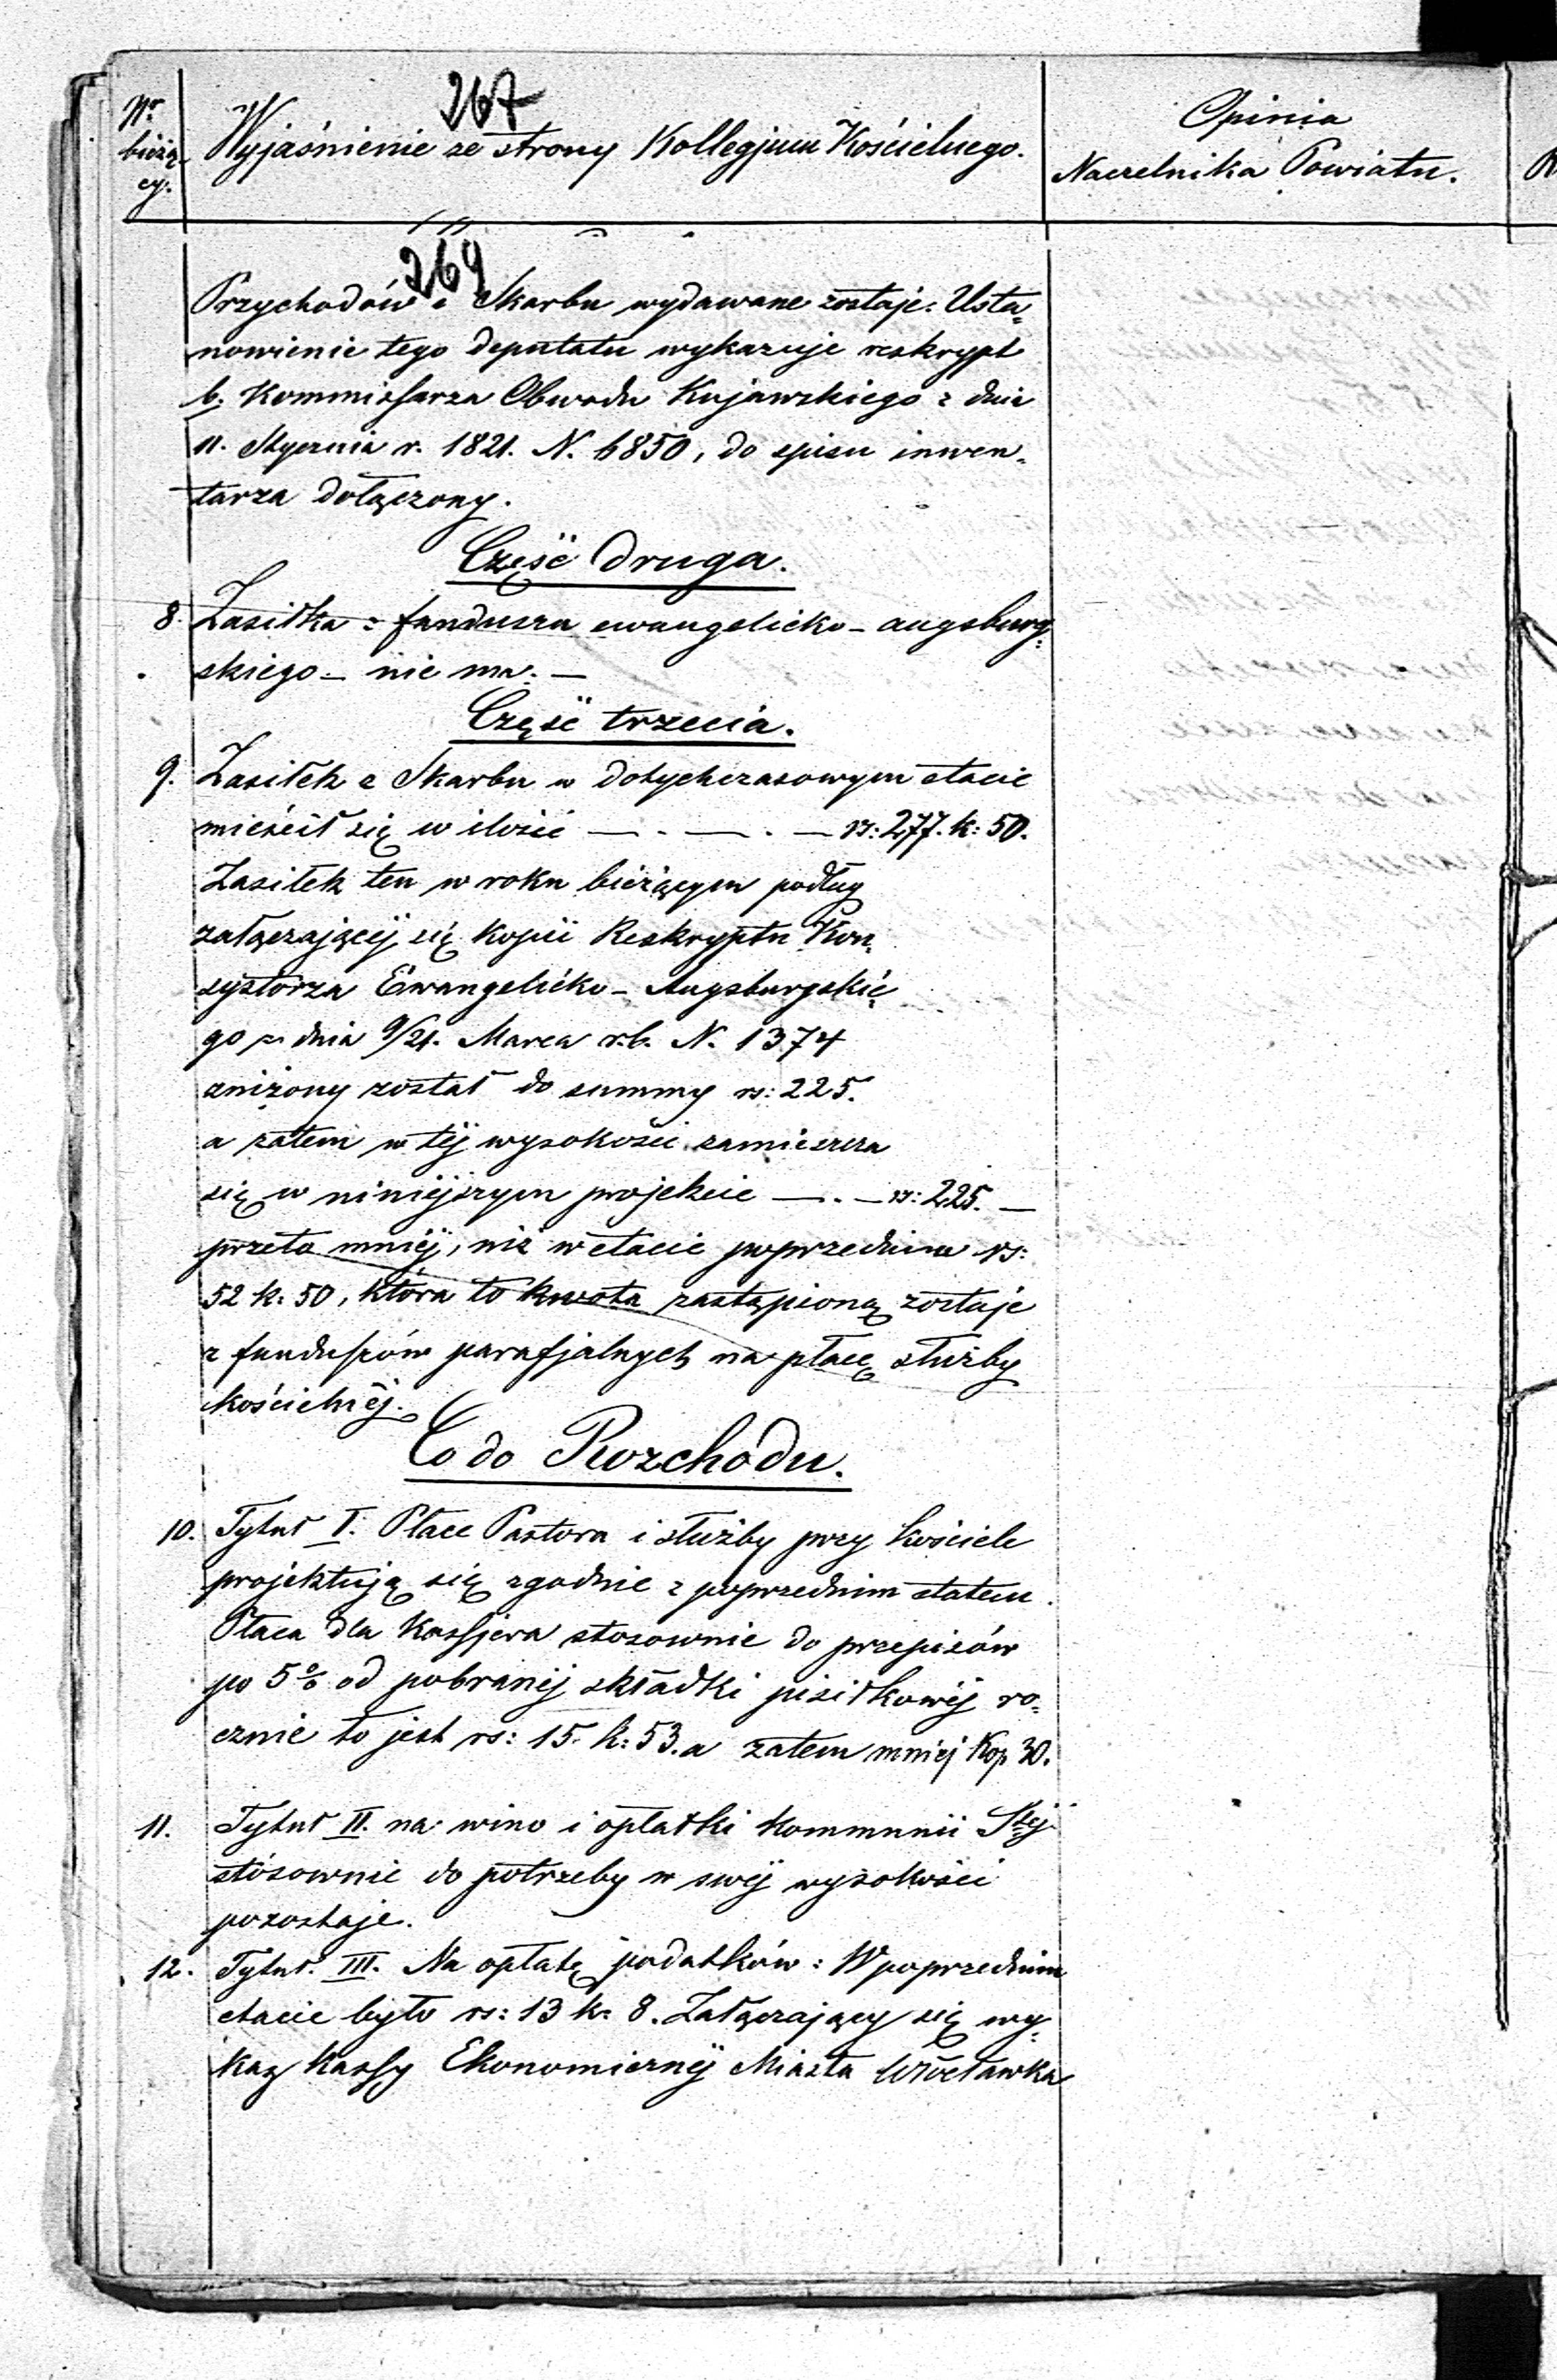 267
Nr bieżą-cy.
Wyjaśnienie ze strony Kollegjum Kościelnego.
Opinia
Naczelnika Powiatu.
269
Przychodów i Skarbu wydawane zostaje. Usta-
nowienie tego deputatu wykazuje reskrypt
b. Kommissarza Obwodu Kujawskiego z dnia
11. Stycznia r. 1821. N. 6850, do spisu inwen-
tarza dołączony.
Część druga.
8. Zasiłka z funduszu ewangelicko-augsburg-
skiego – nie ma. –
Część trzecia.
9. Zasiłek z Skarbu w dotychczasowym etacie
mieścił się w ilości — . — . — rs: 277. k: 50.
Zasiłek ten w roku bieżącym podług
załączającej się kopii Reskryptu Kon-
systorza Ewangelicko-Augsburgskie-
go z dnia 9/21. Marca r.b. N. 1374
zniżony został do summy rs: 225.
a zatem w téj wysokości zamieszcza
się w niniejszym projekcie — . — rs: 225. —
przeto mniéj, niż w etacie poprzednim rs:
52 k: 50, która to kwota zastąpioną zostaje
z funduszów parafjalnych na płacę służby
kościelnéj.
Co do Rozchodu.
10. Tytuł I. Płace Pastora i służby przy kościele
projektują się zgodnie z poprzednim etatem.
Płaca dla Kassjera stosownie do przepisów
po 5% od pobranéj składki posiłkowéj ro-
cznie to jest rs: 15. k: 53. a zatem mniéj Kop 30.
11. Tytuł II. na wino i opłatki Kommunii Stéj
stósownie do potrzeby w swéj wysokości
pozostaje.
12. Tytuł. III. Na opłatę podatków: W poprzednim
etacie było rs: 13 k: 8. Załączający się wy-
kaz Kassy Ekonomicznéj Miasta Włocławka